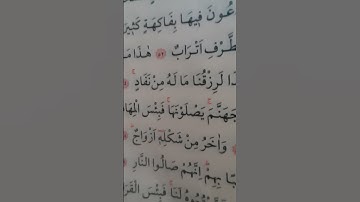 عُونَ فِيهَا بِفَاكِهَةٍ كَثِيرَ
طَّرْفِ اَتْرَابٌ ﴿٥٢﴾ هٰذَا مَا
ذَا لَرِزْقُنَا مَا لَهُ مِنْ نَفَادٍ
جَهَنَّمَ يَصْلَوْنَهَا فَبِئْسَ الْمِهَا
وَاٰخَرُ مِنْ شَكْلِهٖ اَزْوَاجٌ
بًا بِهِمْ اِنَّهُمْ صَالُوا النَّارِ
لَنَا فَبِئْسَ الْقَرَا